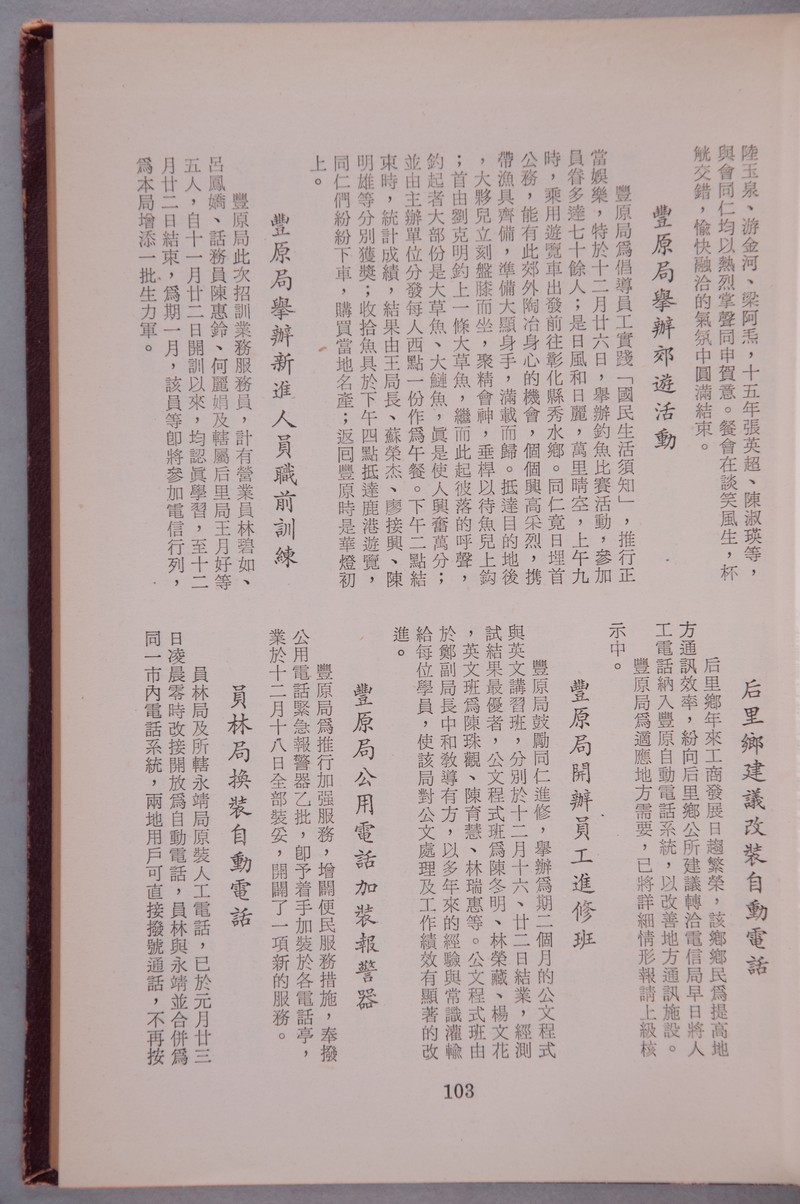 陸玉泉、游金河、梁阿炁，十五年張英超、陳淑瑛等，
與會同仁均以熱烈掌聲同申賀意。餐會在談笑風生，杯
觥交錯，愉快融洽的氣氛中圓滿結束。
豐原局舉辦郊遊活動
豐原局爲倡導員工實踐「國民生活須知」，推行正
當娛樂，特於十二月廿六日，舉辦釣魚比賽活動，參加
員眷多達七十餘人；是日風和日麗，萬里晴空，上午九
時，乘用遊覽車出發前往彰化縣秀水鄉。同仁竟日埋首
公務，能有此郊外陶冶身心的機會，個個興高采烈，携
帶漁具齊備，準備大顯身手，滿載而歸。抵達目的地後
，大夥兒立刻盤膝而坐，聚精會神，垂桿以待魚兒上鈎
；首由劉克明釣上一條大草魚，繼而此起彼落的呼聲，
釣起者大部份是大草魚、大鰱魚，眞是使人興奮萬分；
並由主辦單位分發每人西點一份作爲午餐。下午二點結
束時，統計成績，結果由王局長、蘇榮杰、廖接興、陳
明雄等分別獲獎；收拾魚具於下午四點抵達鹿港遊覽，
同仁們紛紛下車，購買當地名產；返回豐原時是華燈初
上。
豐原局舉辦新進人員職前訓練
豐原局此次招訓業務服務員，計有營業員林碧如、
呂鳳嬌、話務員陳惠鈴、何麗娟及轄屬后里局王月好等
五人，自十一月廿二日開訓以來，均認眞學習，至十二
月廿二日結束，爲期一月，該員等卽將參加電信行列，
爲本局增添一批生力軍。
后里鄉建議改裝自動電話
后里鄉年來工商發展日趨繁榮，該鄉鄉民爲提高地
方通訊效率，紛向后里鄉公所建議轉洽電信局早日將人
工電話納入豐原自動電話系統，以改善地方通訊施設。
豐原局爲適應地方需要，已將詳細情形報請上級核
示中。
豐原局開辦員工進修班
豐原局鼓勵同仁進修，舉辦爲期二個月的公文程式
與英文講習班，分別於十二月十六、廿二日結業，經測
試結果最優者，公文程式班爲陳冬明、林榮藏、楊文花
，英文班爲陳珠觀、陳育慧、林瑞惠等。公文程式班由
於鄭副局長中和敎導有方，以多年來的經驗與常識灌輸
給每位學員，使該局對公文處理及工作績效有顯著的改
進。
豐原局公用電話加裝報警器
豐原局爲推行加强服務，增闢便民服務措施，奉撥
公用電話緊急報警器乙批，卽予着手加裝於各電話亭，
業於十二月十八日全部裝妥，開闢了一項新的服務。
員林局換裝自動電話
員林局及所轄永靖局原裝人工電話，已於元月廿三
日凌晨零時改接開放爲自動電話，員林與永靖並合併爲
同一市內電話系統，兩地用戶可直接撥號通話，不再按
103